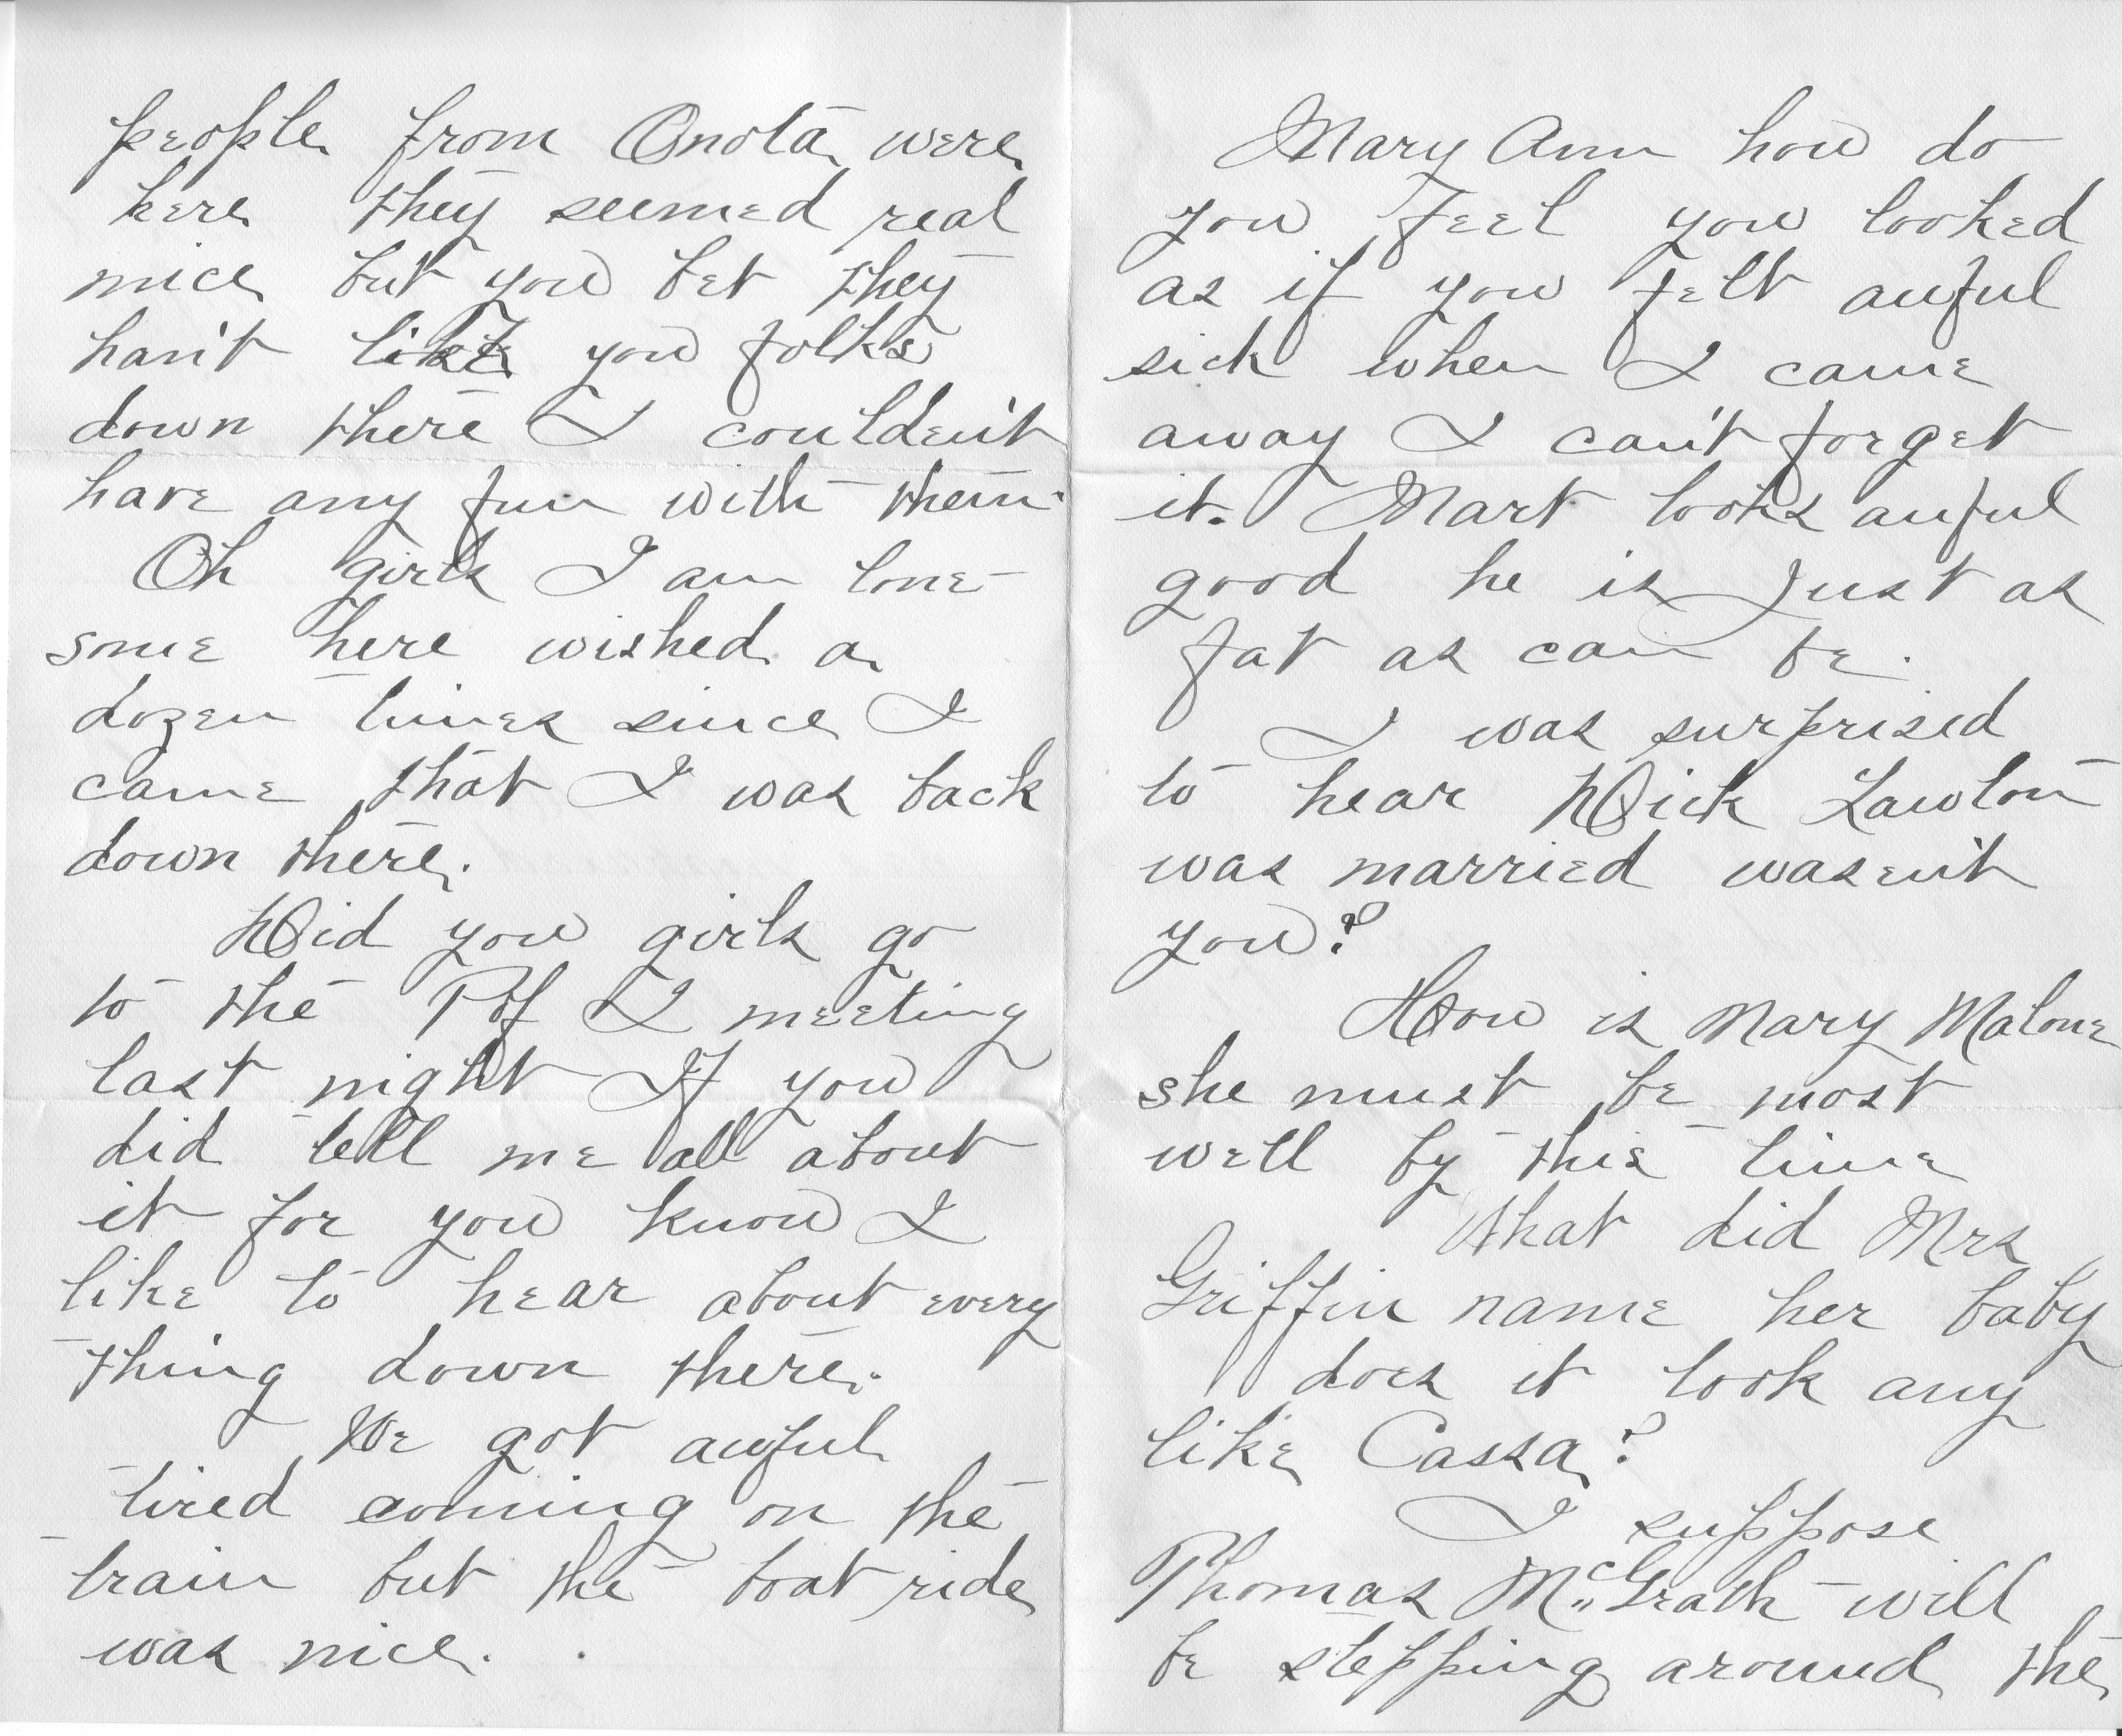 people from Onota were
here they seemed real
nice but you bet they
han't like you folks
down there I could'en't
have any fun with them.
Oh girls I am lone-
some here wished a
dozen times since I
came that I was back
down there.
Did you girls go
to the P of I meeting
last night If you
did tell me all about
it for you know I
like to hear about every
thing down there.
We got awful
tired coming on the
train but the boat ride
was nice.
Mary Ann how do
you feel you looked
as if you felt awful
sick when I came
away I can't forget
it. Mart looks awful
good he is just as
fat as can be.
I was surprised
to hear Dick Lawton
was married wasen't
you?
How is Mary Malone
she must be most
well by this time
What did Mrs
Griffin name her baby
does it look any
like Cassa?
I suppose
Thomas McGrath will
be stepping around the